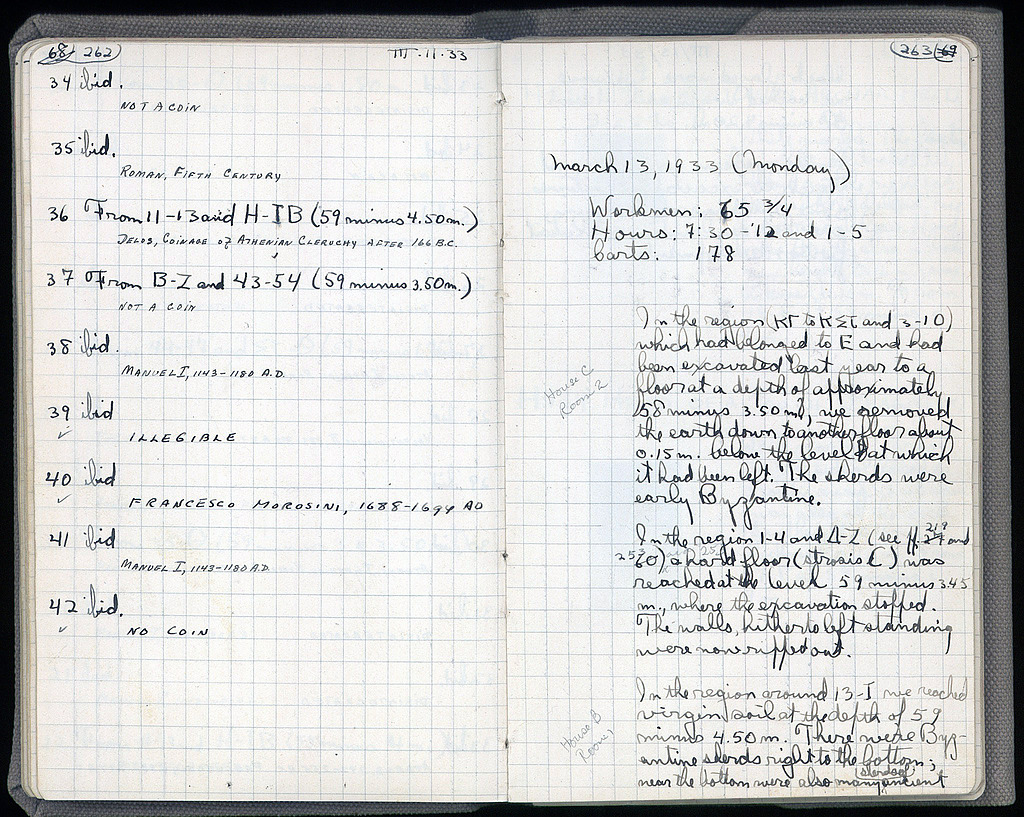 68 262
III-11-33
34 ibid.
NOT A COIN
35 ibid.
ROMAN, FIFTH CENTURY
36 From 11-13 and H-IB (59 minus 4.50 m.)
DELOS, COINAGE OF ATHENIAN CLERUCHY AFTER 166 B.C.
37 From B-Z and 43-54 (59 minus 3.50m.)
NOT A COIN
38 ibid.
MANUEL I, 1143-1180 A.D.
39 ibid
✓ ILLEGIBLE
40 ibid
✓ FRANCESCO MOROSINI, 1688-1694 AD
41 ibid
MANUEL I, 1143-1180 A.D.
42 ibid.
✓ NO COIN
263 69
March 13, 1933 (Monday)
Workmen: 65 3/4
Hours: 7:30-12 and 1-5
Carts: 178
In the region (ΚΓ to ΚΣΤ and 3-10)
which had belonged to E and had
been excavated last year to a
House C
Room 2
floor at a depth of approximately
58 minus 3.50 m., we removed
the earth down to another floor about
0.15 m. below the level at which
it had been left. The sherds were
early Byzantine.
In the region 1-4 and Δ-Z (see pp. 219 and
253) a hard floor (strosis C) was
reached at the level 59 minus 3.45
m., where the excavation stopped.
The walls, hitherto left standing
were now ripped out.
In the region around 13-I we reached
House B
Room 1
virgin soil at the depth of 59
minus 4.50 m. There were Byz-
antine sherds right to the bottom;
near the bottom were also many sherds of ancient